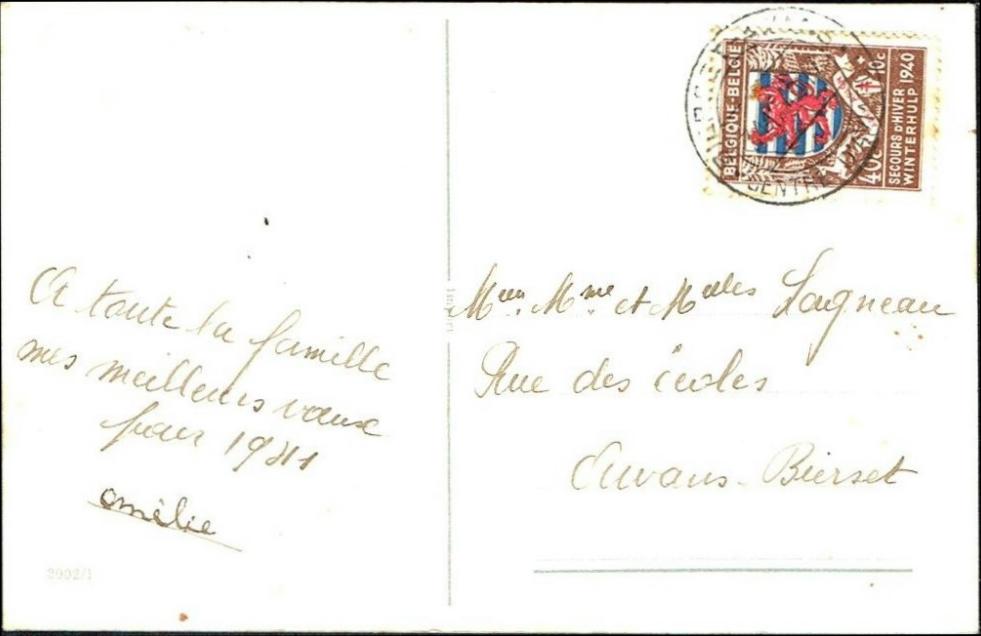 A toute la famille
mes meilleurs vœux
pour 1941
Amélie
3902/1
Mr. Mme et Melles Lagneau
Rue des écoles
Awans-Bierset
BELGIQUE-BELGIË
40c
10c
SECOURS D'HIVER
WINTERHULP 1940